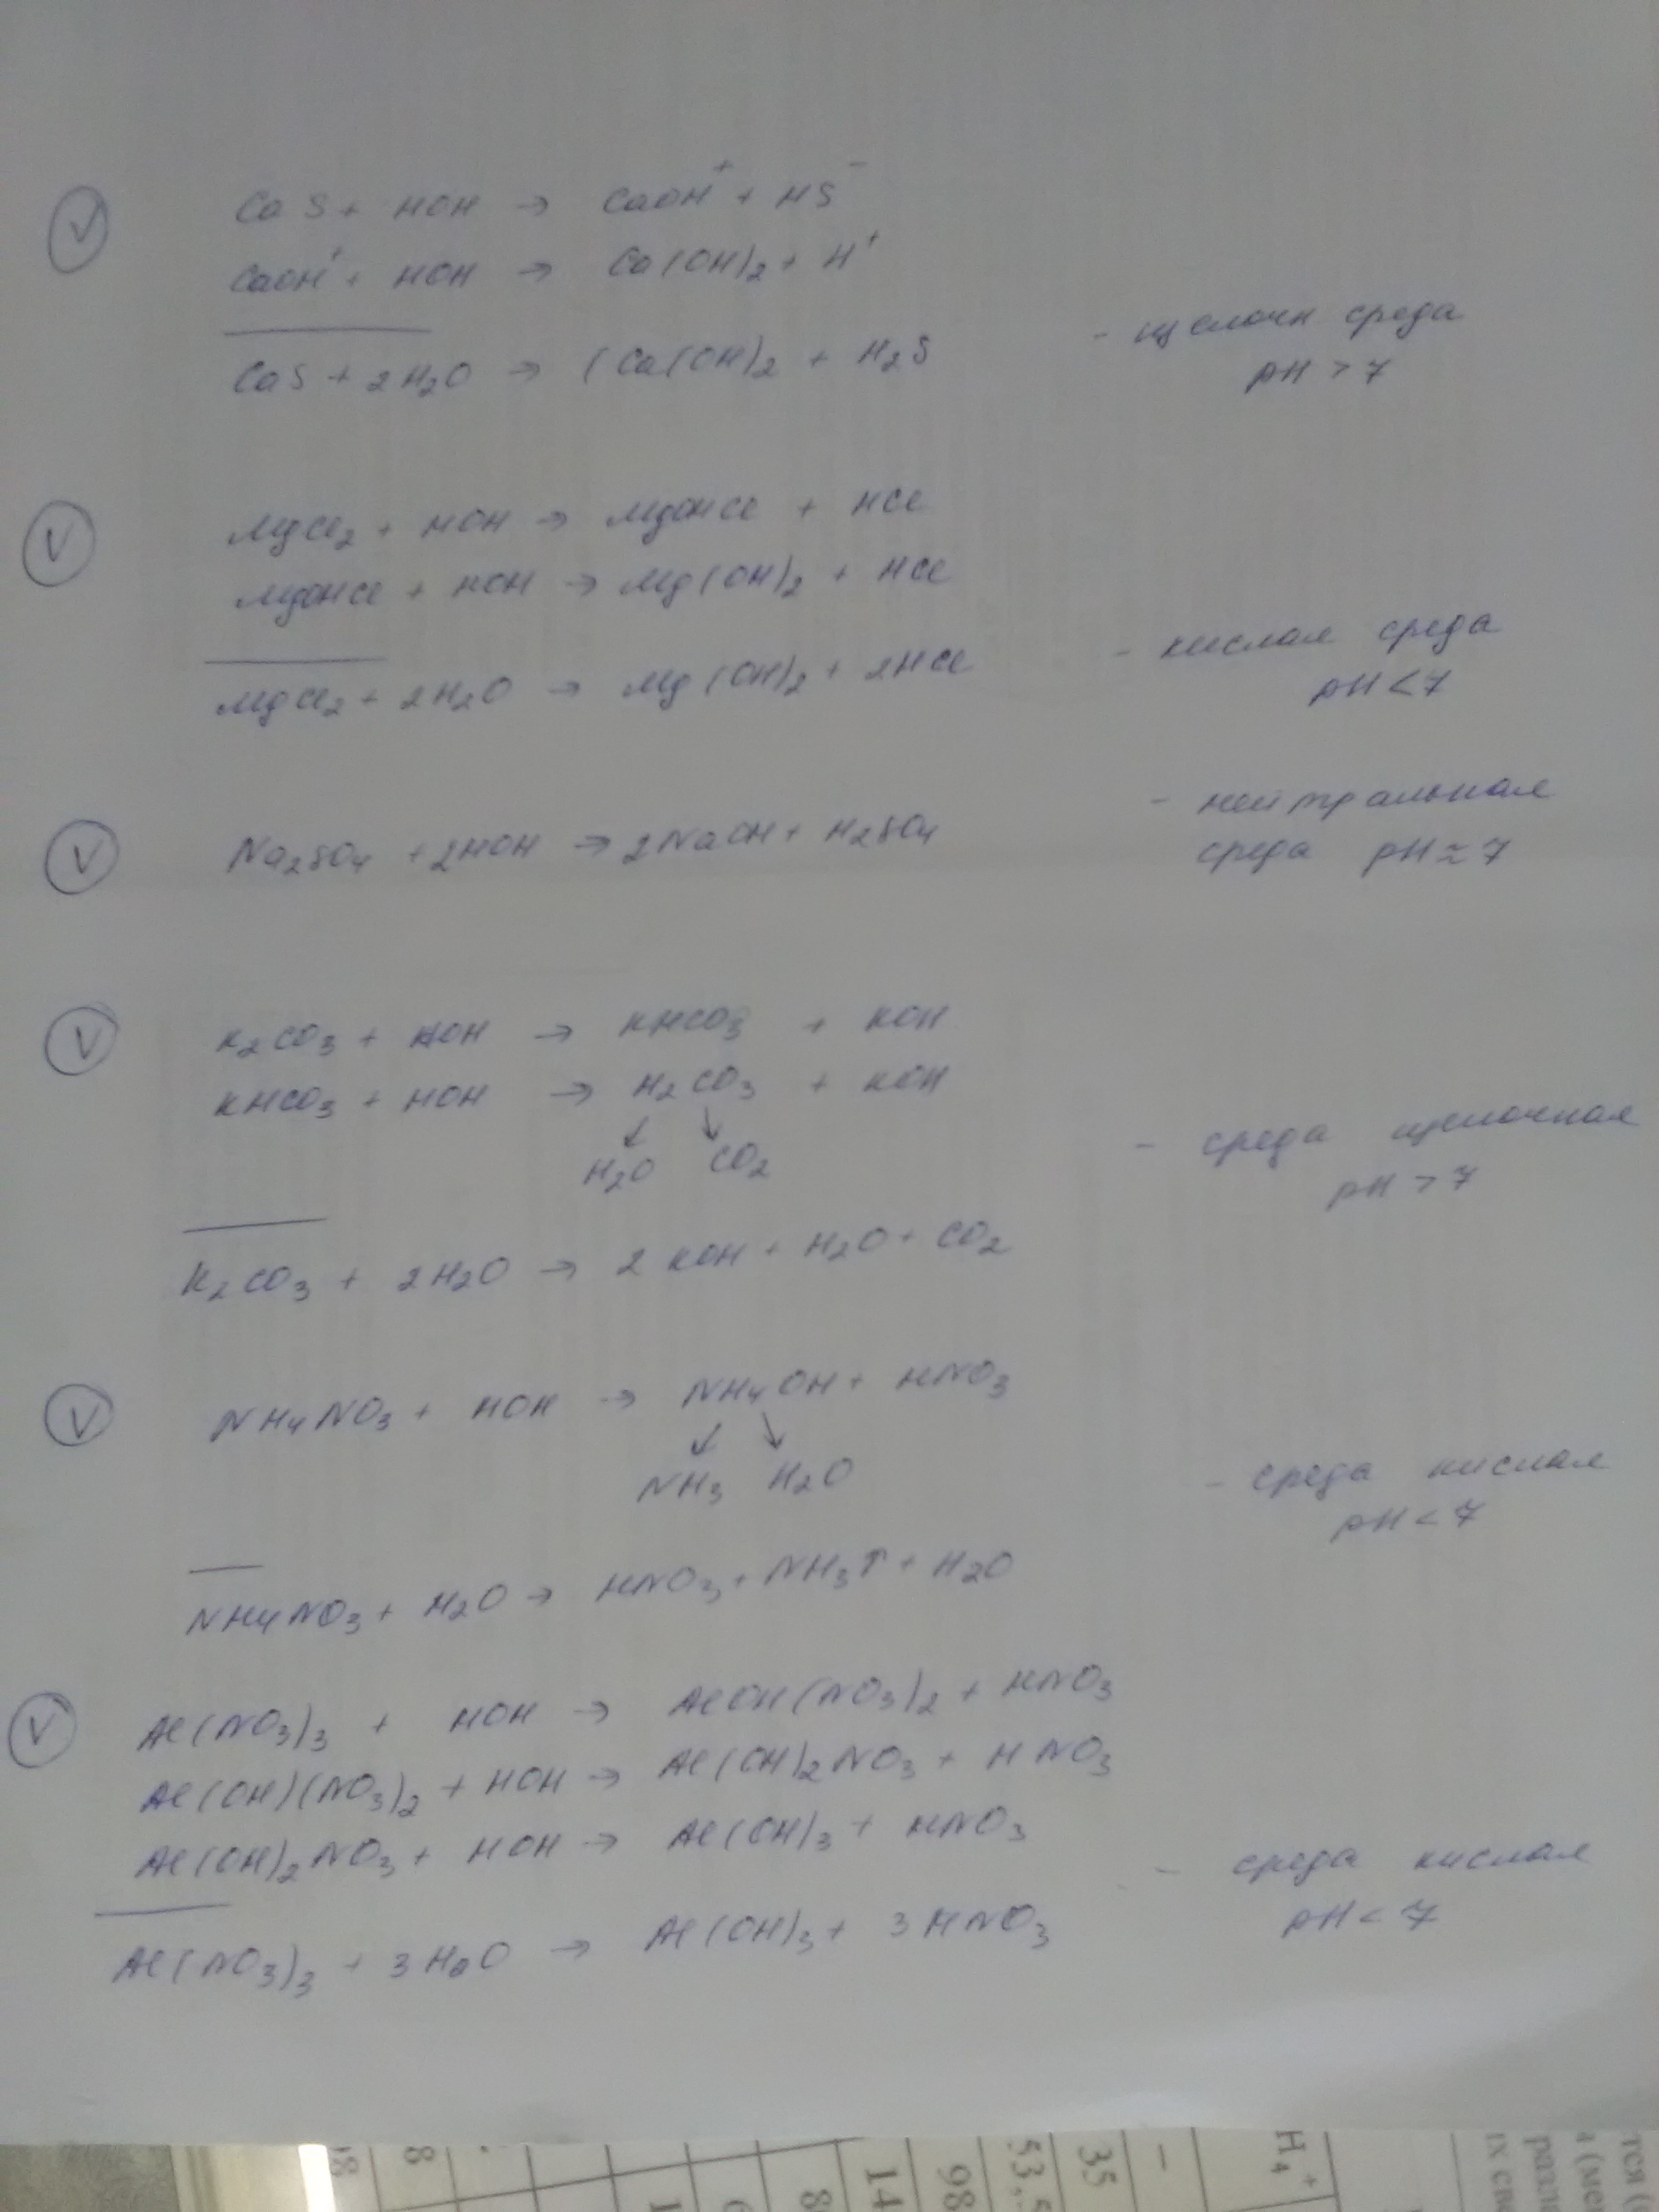 V
CaS + HOH → CaOH⁺ + HS⁻
CaOH⁺ + HOH → Ca(OH)₂ + H⁺
CaS + 2H₂O → (Ca(OH)₂ + H₂S
- щелочн среда
pH > 7
V
MgCl₂ + HOH → MgOHCl + HCl
MgOHCl + HOH → Mg(OH)₂ + HCl
MgCl₂ + 2H₂O → Mg(OH)₂ + 2HCl
- кислая среда
pH < 7
V
Na₂SO₄ + 2HOH → 2NaOH + H₂SO₄
- нейтральная
среда pH ≈ 7
V
K₂CO₃ + HOH → KHCO₃ + KOH
KHCO₃ + HOH → H₂CO₃ + KOH
↙ ↘
H₂O CO₂
- среда щелочная
pH > 7
K₂CO₃ + 2H₂O → 2KOH + H₂O + CO₂
V
NH₄NO₃ + HOH → NH₄OH + HNO₃
↙ ↘
NH₃ H₂O
- среда кислая
pH < 7
NH₄NO₃ + H₂O → HNO₃ + NH₃↑ + H₂O
V
Al(NO₃)₃ + HOH → AlOH(NO₃)₂ + HNO₃
Al(OH)(NO₃)₂ + HOH → Al(OH)₂NO₃ + HNO₃
Al(OH)₂NO₃ + HOH → Al(OH)₃ + HNO₃
Al(NO₃)₃ + 3H₂O → Al(OH)₃ + 3HNO₃
- среда кислая
pH < 7
8
14
98
53,5
35
–
H₄⁺